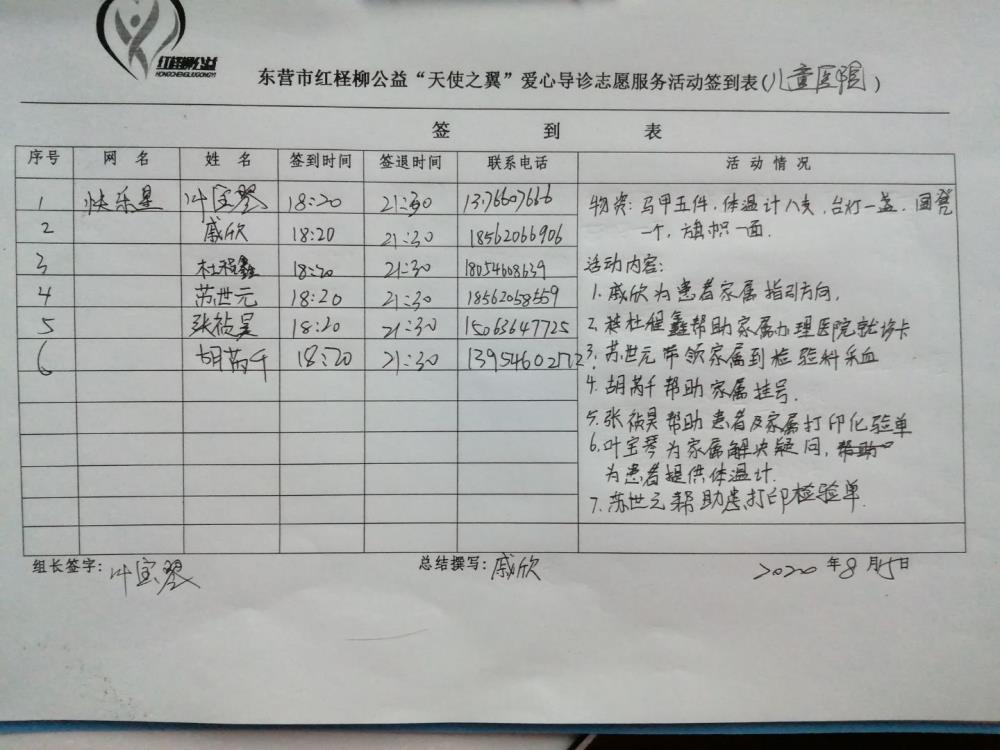 红柽柳公益
HONGCHENGLIUGONGYI
东营市红柽柳公益“天使之翼”爱心导诊志愿服务活动签到表(儿童医院)
签 到 表
序号 网 名 姓 名 签到时间 签退时间 联系电话 活 动 情 况
1 快乐星 叶宝琴 18:20 21:30 13176607666
2 戚欣 18:20 21:30 18562066906
3 杜程鑫 18:20 21:30 18054608639
4 苏世元 18:20 21:30 18562058559
5 张祯昊 18:20 21:30 15063647725
6 胡芮千 18:20 21:30 13954602172
物资:马甲五件.体温计八支.台灯一盏.圆凳
一个,旗帜一面.
活动内容:
1.戚欣为患者家属指引方向.
2.杜程鑫帮助家属办理医院就诊卡
3.苏世元带领家属到检验科采血
4.胡芮千帮助家属挂号.
5.张祯昊帮助患者及家属打印化验单
6.叶宝琴为家属解决疑问,帮助
为患者提供体温计.
7.苏世元帮助患打印检验单.
组长签字:叶宝琴 总结撰写:戚欣 2020年8月15日